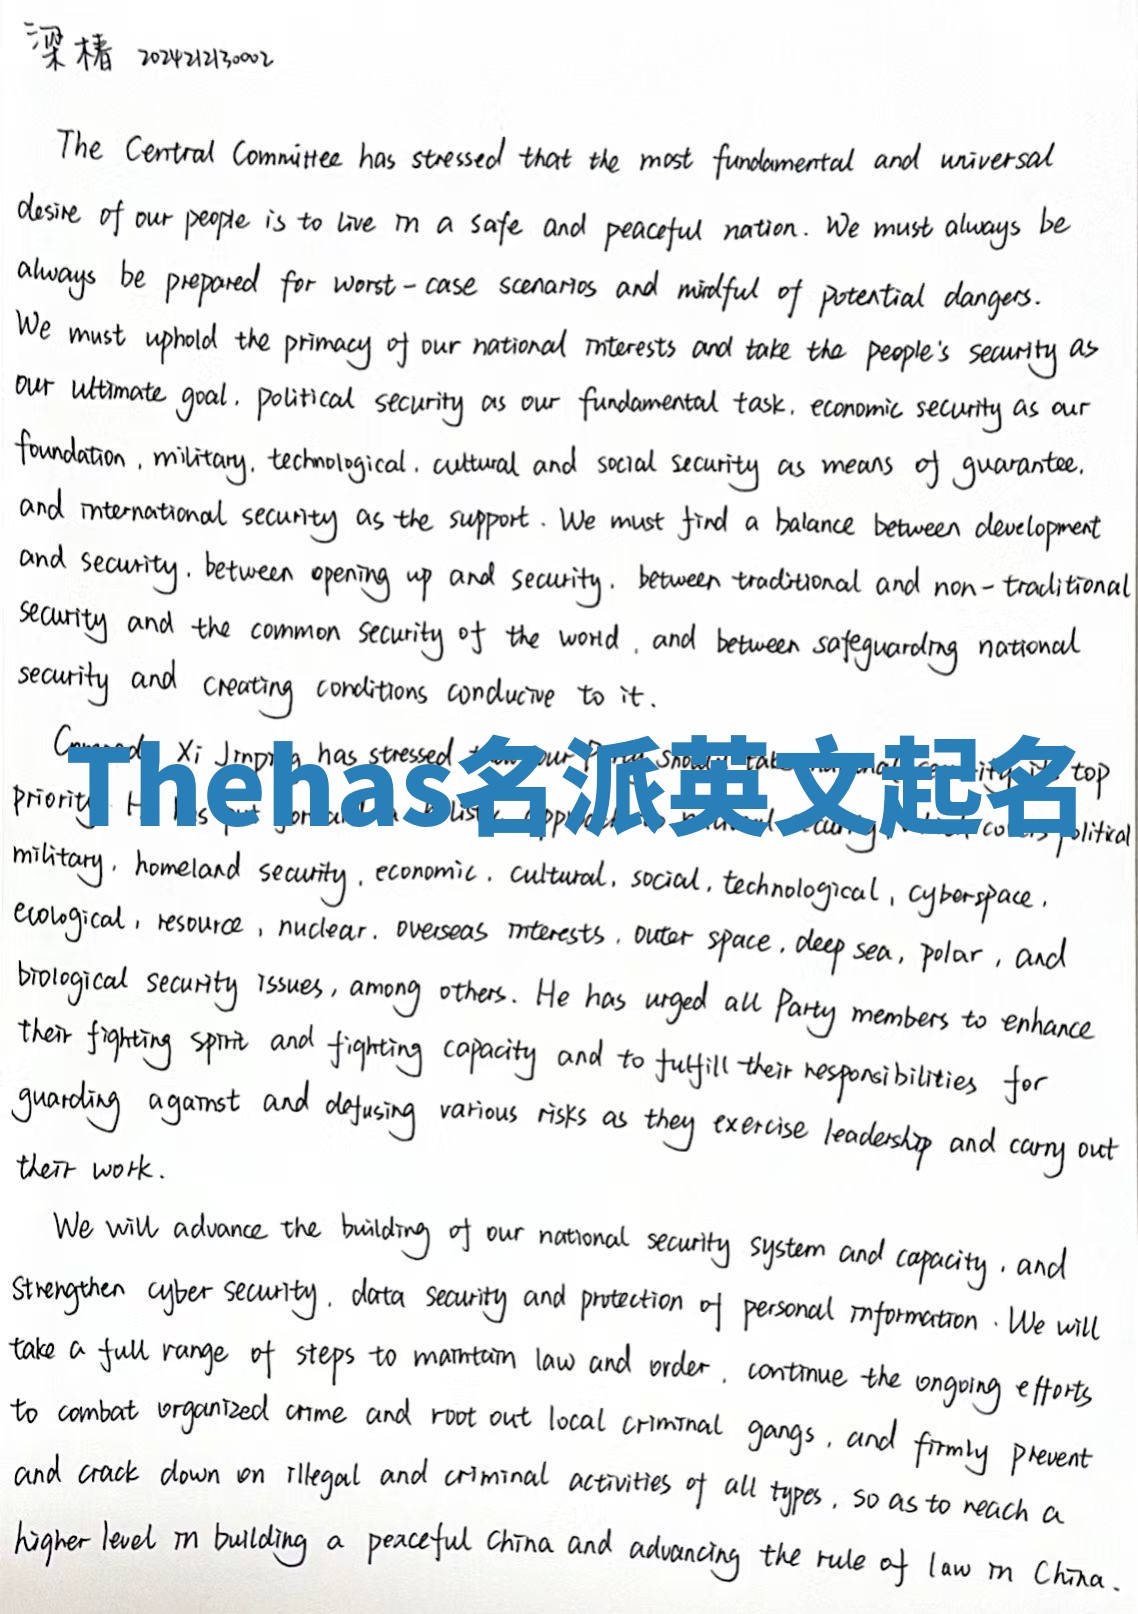 梁椿 2024212130002
The Central Committee has stressed that the most fundamental and universal
desire of our people is to live in a safe and peaceful nation. We must always be
always be prepared for worst-case scenarios and mindful of potential dangers.
We must uphold the primacy of our national interests and take the people's security as
our ultimate goal, political security as our fundamental task, economic security as our
foundation, military, technological, cultural and social security as means of guarantee,
and international security as the support. We must find a balance between development
and security, between opening up and security, between traditional and non-traditional
security and the common security of the world, and between safeguarding national
security and creating conditions conducive to it.
Xi Jinping has stressed our top
Thehas名派英文起名
priority political
military, homeland security, economic, cultural, social, technological, cyberspace,
ecological, resource, nuclear, overseas interests, outer space, deep sea, polar, and
biological security issues, among others. He has urged all Party members to enhance
their fighting spirit and fighting capacity and to fulfill their responsibilities for
guarding against and defusing various risks as they exercise leadership and carry out
their work.
We will advance the building of our national security system and capacity, and
strengthen cyber security, data security and protection of personal information. We will
take a full range of steps to maintain law and order, continue the ongoing efforts
to combat organized crime and root out local criminal gangs, and firmly prevent
and crack down on illegal and criminal activities of all types, so as to reach a
higher level in building a peaceful China and advancing the rule of law in China.